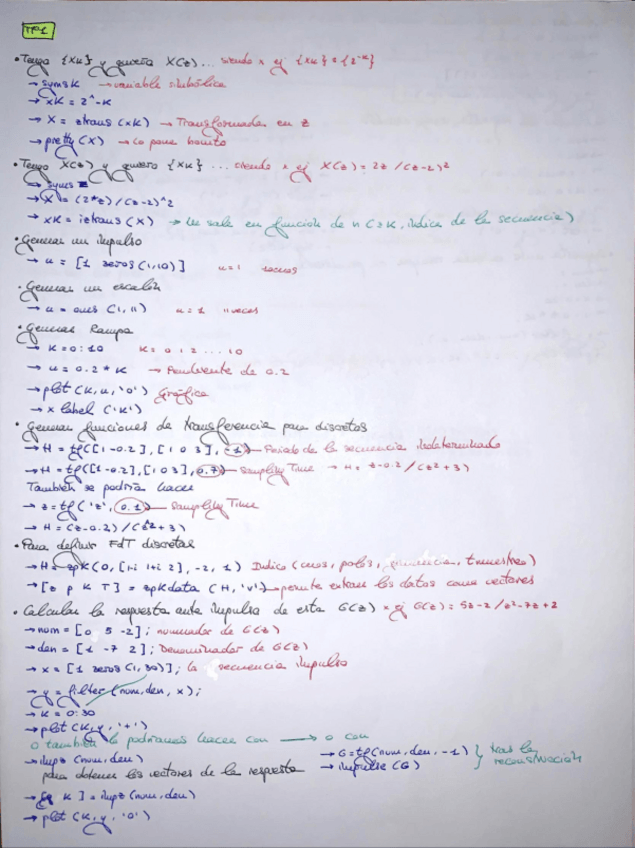 TP1
• Tengo {Xk} y quiero X(z)... siendo x ej {Xk} = {2^-k}
→ syms k → variable simbólica
→ xk = 2^-k
→ X = ztrans (xk) → Transformada en z
→ pretty (X) → Lo pone bonito
• Tengo X(z) y quiero {Xk} ... siendo x ej X(z) = 2z /(z-2)²
→ syms z
→ X = (2*z)/(z-2)^2
→ xk = iztrans (X) → Me sale en función de n (≥k, índice de la secuencia)
• Generar un impulso
→ u = [1 zeros(1,10)] u=1 10ceros
• Generar un escalón
→ u = ones (1,11) u=1 11veces
• Generar Rampa
→ k=0:10 k= 0 1 2 ... 10
→ u = 0.2 * k → Pendiente de 0.2
→ plot (k,u,'o') Gráfica
→ xlabel ('k')
• Generar funciones de transferencia para discretas
→ H = tf([1 -0.2], [1 0 3], -1) → Periodo de la secuencia indeterminado
→ H = tf([1 -0.2], [1 0 3], 0.7) → Sampling Time → H = z-0.2/(z²+3)
También se podría hacer
→ z = tf('z', 0.1) → Sampling Time
→ H = (z-0.2)/(z²+3)
• Para definir FdT discretas
→ H = zpk(0, [1-i 1+i 2], -2, 1) Indico (ceros, polos, ganancia, tmuestreo)
→ [z p k T] = zpkdata (H, 'v') → permite extraer los datos como vectores
• Calcular la respuesta ante impulso de esta G(z) x ej G(z) = 5z-2/z²-7z+2
→ nom = [0 5 -2]; nominador de G(z)
→ den = [1 -7 2]; Denominador de G(z)
→ x = [1 zeros(1,30)]; la secuencia impulso
→ y = filter (nom,den, x);
→ k = 0:30
→ plot (k,y, '+')
o también lo podríamos hacer con → o con
→ impz (num,den) → G=tf(num,den,-1) } tras la
para obtener los vectores de la respuesta → impulse(G) reconstrucción
→ [y k] = impz (num,den)
→ plot (k,y, 'o')